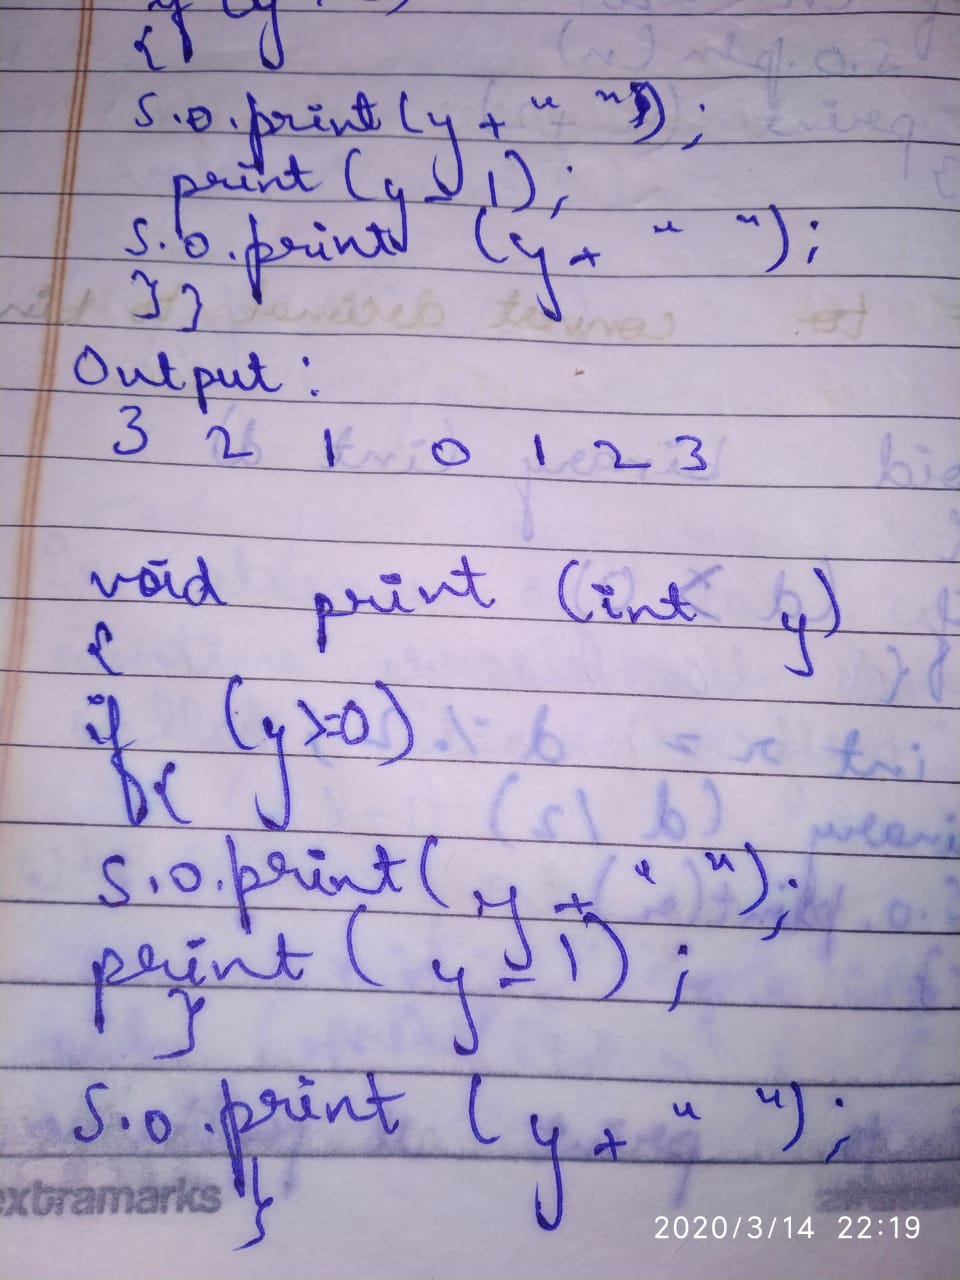 {
S.o.print(y + " ");
print (y - 1);
S.o.print (y + " ");
}}
Output :
3 2 1 0 1 2 3
void print (int y)
{
if (y>=0)
{
S.o.print( y + " ");
print ( y - 1) ;
}
S.o.print ( y + " ") ;
}
extramarks
2020/3/14 22:19